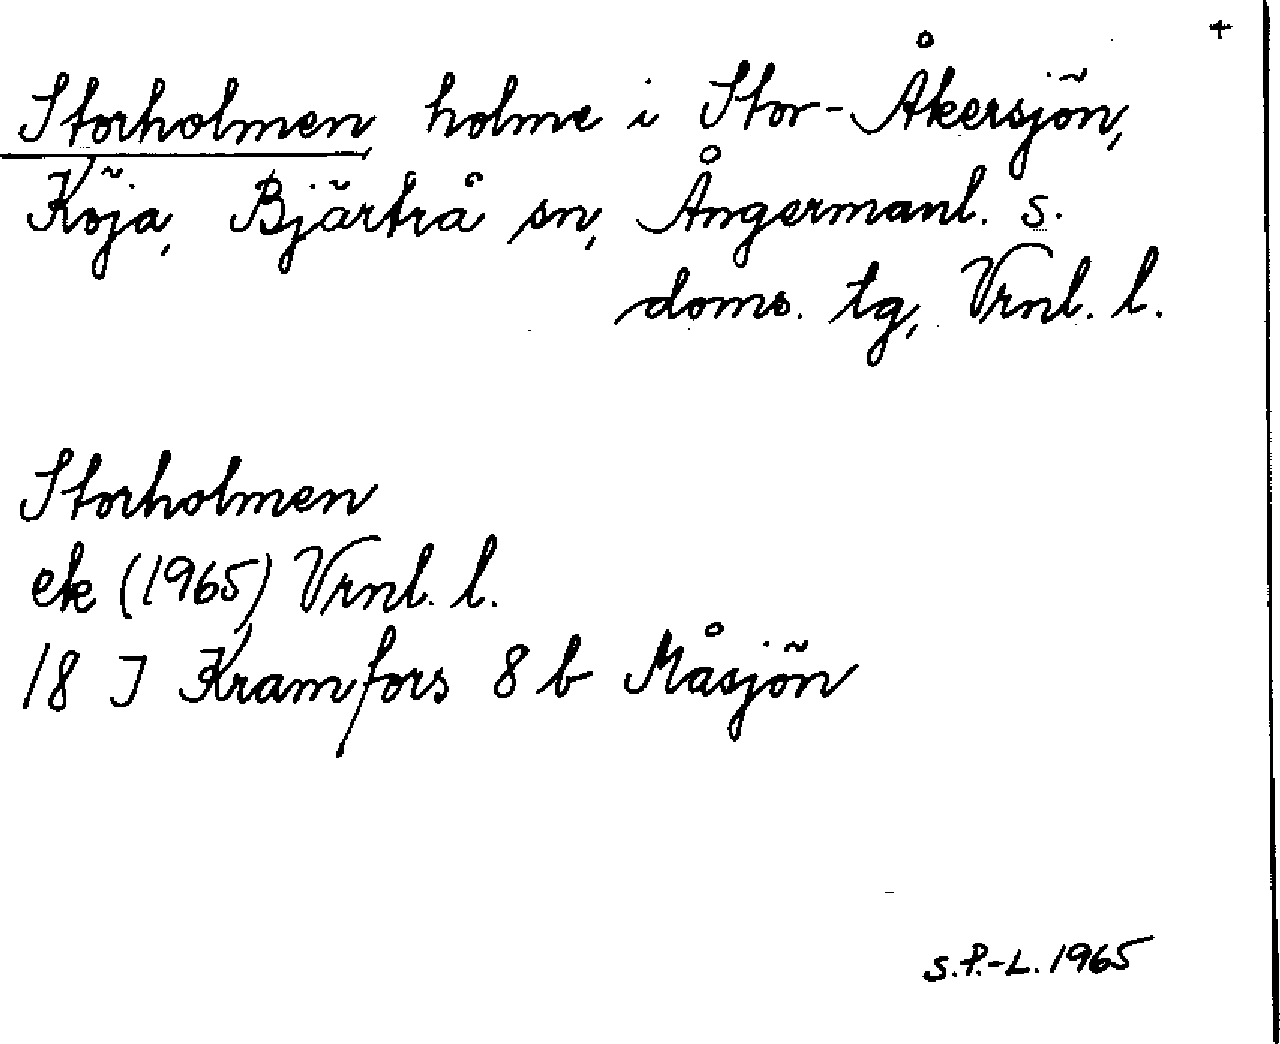 +
Storholmen, holme i Stor-Åkersjön,
Köja, Bjärtrå sn, Ångermanl. s.
doms. tg, Vrnl. l.
Storholmen
ek (1965) Vrnl. l.
18 I Kramfors 8 b Måsjön
S.P.-L. 1965